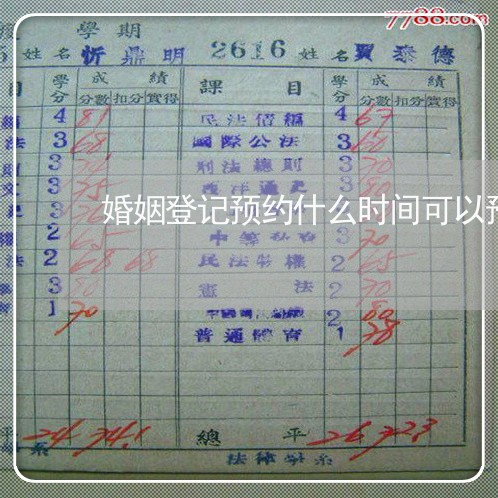 7788.com
學期
姓名 忻鼎明 2616 姓名 賈泰德
目 學分 成績 課目 學分 成績
分數 扣分 實得 分數 扣分 實得
4 81 民法債編 4 67
法 3 68 國際公法 3 60
3 刑法總則 3 70
3 75 西洋通史 3 80
婚姻登记预约什么时间可以预
2 65 3 70
法 2 68 68 民法物權 2 65
3 80 憲法 2 70
1 70 2 80
普通體育 1 78
平 24 74.1 總平 26 72.3
系 法律學系